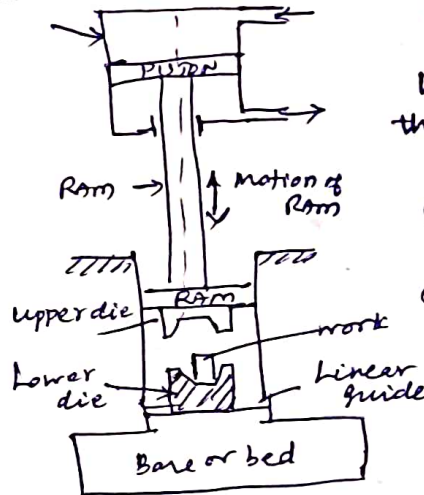 PISTON
th
RAM
Motion of
RAM
RAM
upper die
work
Lower
die
Linear
guide
Base or bed